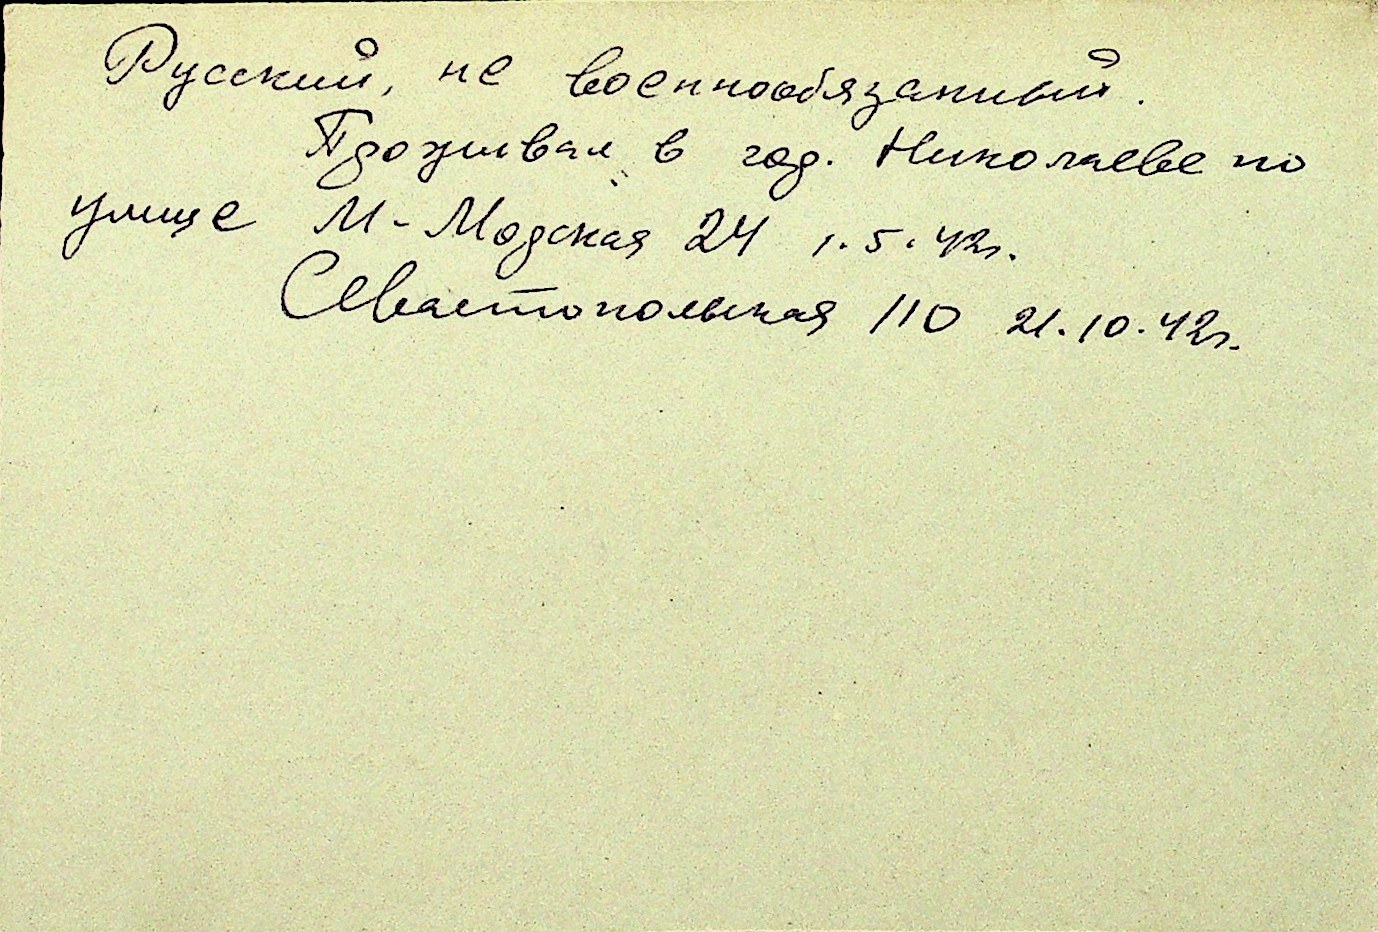 Русский, не военнообязанный.
Проживал в гор. Николаеве по
улице М-Морская 24 1.5.42г.
Севастопольская 110 21.10.42г.